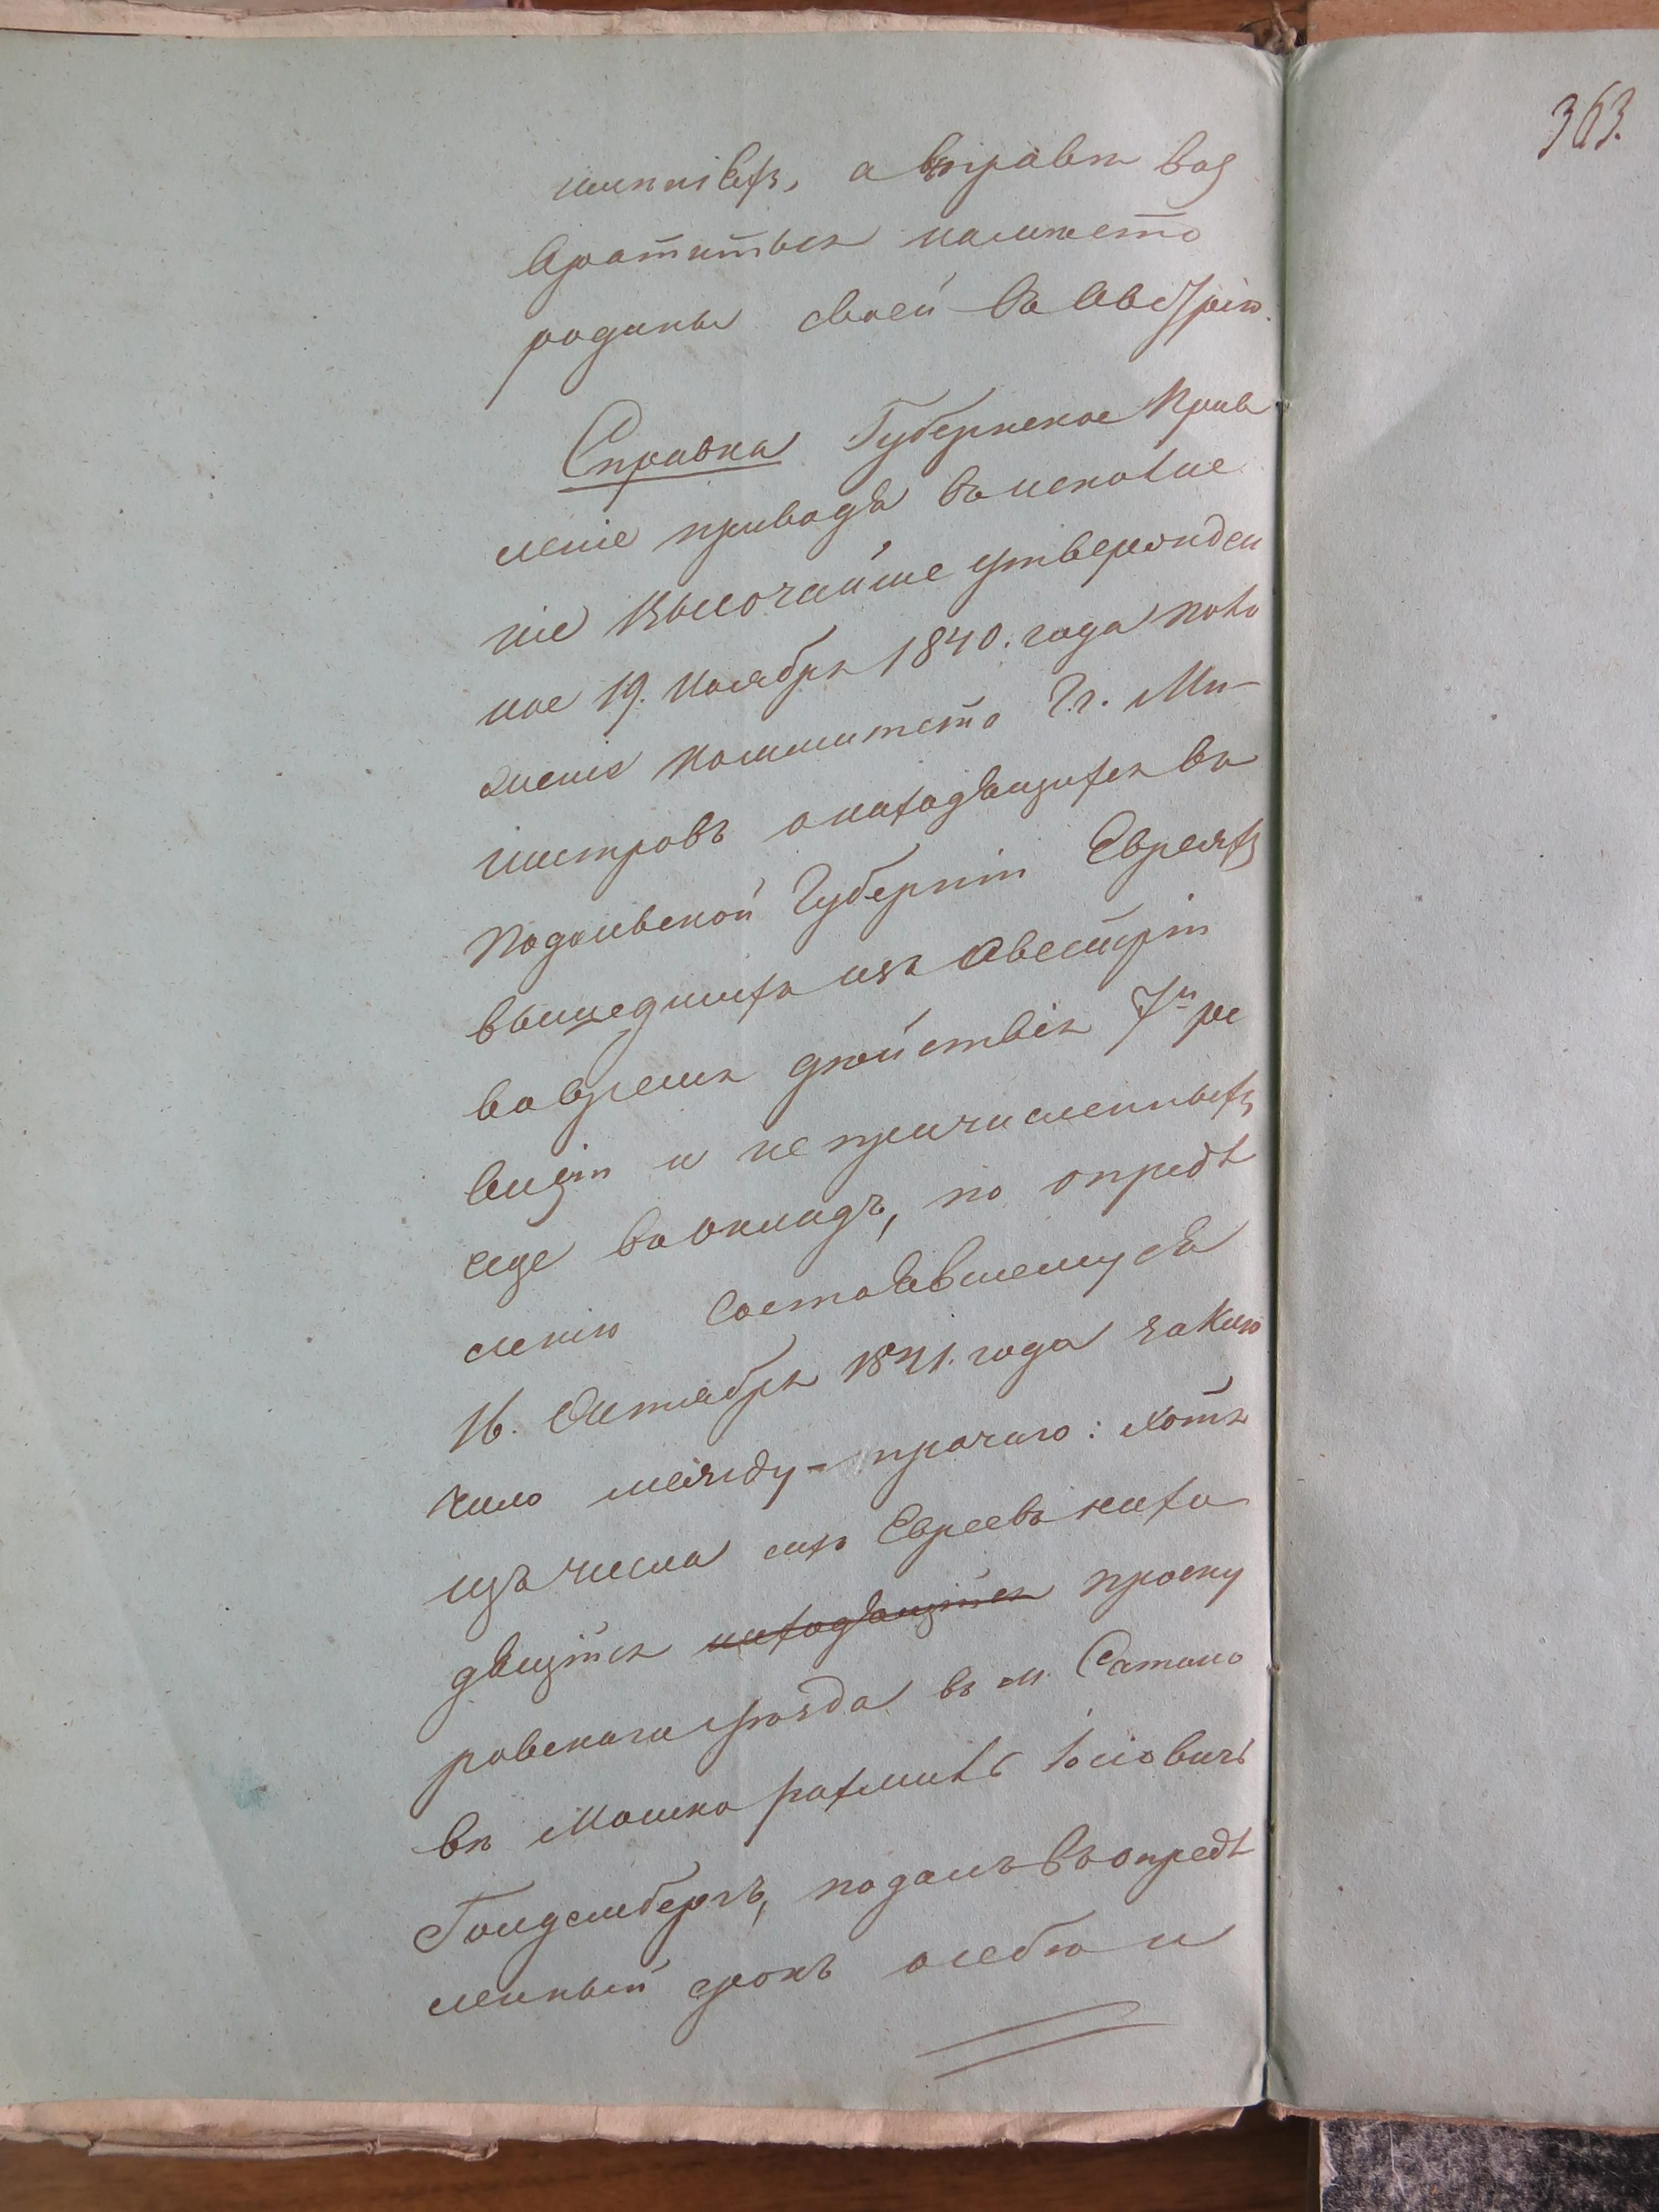 363.
а вправѣ воз
вратиться на мѣсто
родины своей въ Австрію.
Справка Губернское Прав
леніе приводя во исполне
ніе Высочайше утвержден
ное 19. Ноября 1840. года поло
женіе Комитета Г.г. Ми-
нистровъ о находящихся въ
Подольской Губерніи Евреяхъ
вышедшихъ изъ Австріи
во время дѣйствія 7й ре
визіи и не причисленныхъ
еще въ окладъ, по опредѣ
ленію Состоявшемуся
16. Октября 1841. года заклю
чило между-прочимъ: хотя
изъ числа сихъ Евреевъ нахо
дящійся находящійся Проску
ровскаго уѣзда въ м. Сатано
вѣ Мошко Рахмиль Іосіовичъ
Гольденбергъ, подалъ въ опредѣ
ленный срокъ о себѣ и